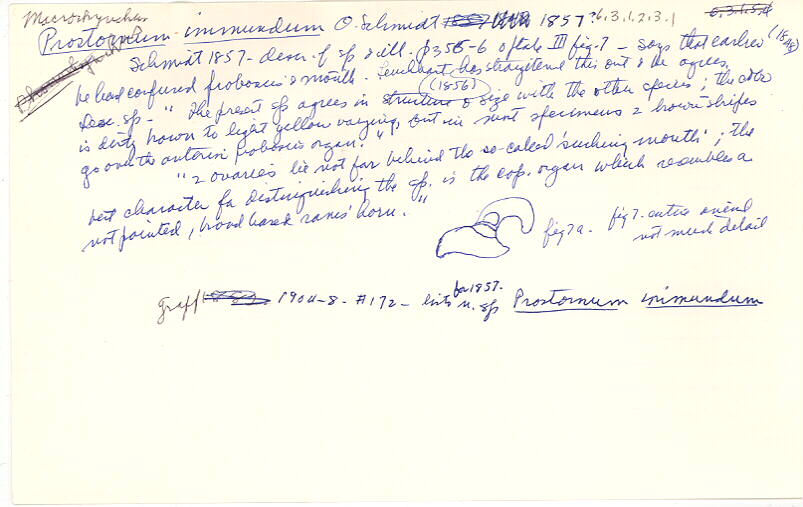 Macrorhynchus
Prostomum immundum O. Schmidt 1857? 6.3.1.2.3.1
Schmidt 1857 - descr. of sp & ill. p 355-6 of tafe III fig-7 - says that earlier (1848)
he had confused proboscis & mouth. Leuckart (1856) has straightend this out & he agrees.
Desc. sp - "The present sp agrees in structure & size with the other species; the color
is dirty brown to light yellow varying, but in most specimens 2 brown stripes
go over the anterior proboscis organ."
"2 ovaries lie not far behind the so-called 'sucking mouth'; the
best character for distinguishing the sp. is the cop. organ which resembles a
not pointed, broad based rams' horn."
fig 7a. fig 7. entire animal
not much detail
Graff 1904-8 - #172 - lists for 1857. n. sp Prostomum immundum